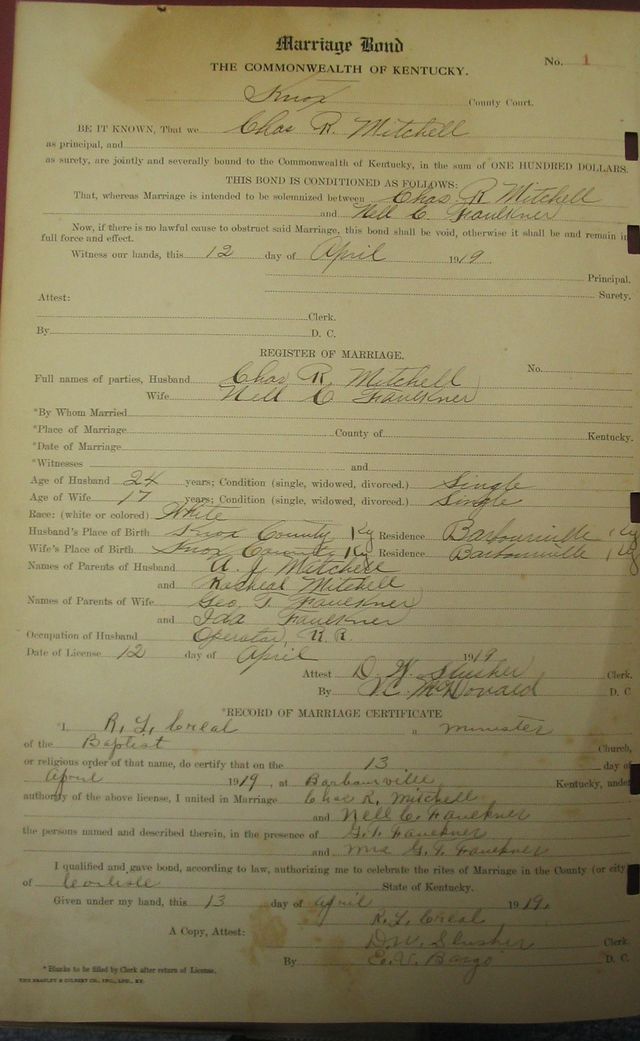 Marriage Bond
THE COMMONWEALTH OF KENTUCKY.
No. 1
Knox County Court.
BE IT KNOWN, That we Chas R. Mitchell
as principal, and
as surety, are jointly and severally bound to the Commonwealth of Kentucky, in the sum of ONE HUNDRED DOLLARS.
THIS BOND IS CONDITIONED AS FOLLOWS:
That, whereas Marriage is intended to be solemnized between Chas. R Mitchell
and Nell C. Faulkner
Now, if there is no lawful cause to obstruct said Marriage, this bond shall be void, otherwise it shall be and remain in
full force and effect.
Witness our hands, this 12 day of April 1919.
Principal.
Surety.
Attest:
Clerk.
By D. C.
REGISTER OF MARRIAGE.
No.
Full names of parties, Husband Chas R. Mitchell
Wife Nell C Faulkner
*By Whom Married
*Place of Marriage County of Kentucky.
*Date of Marriage
*Witnesses and
Age of Husband 24 years; Condition (single, widowed, divorced.) Single
Age of Wife 17 years; Condition (single, widowed, divorced.) Single
Race: (white or colored) White
Husband's Place of Birth Knox County Ky Residence Barbourville, Ky
Wife's Place of Birth Knox County Ky Residence Barbourville, Ky
Names of Parents of Husband A. J. Mitchell
and Mitchell
Names of Parents of Wife Geo. T. Faulkner
and Ida Faulkner
Occupation of Husband Operator, R. R.
Date of License 12 day of April 1919
Attest D. W. Slusher Clerk.
By V.C. McDonald D. C
*RECORD OF MARRIAGE CERTIFICATE
I, R. L. Creal a minister
of the Baptist Church,
or religious order of that name, do certify that on the 13 day of
April 1919, at Barbourville, Kentucky, under
authority of the above license, I united in Marriage Chas R. Mitchell
and Nell C. Faulkner
the persons named and described therein, in the presence of G. T. Faulkner
and Mrs G. T. Faulkner
I qualified and gave bond, according to law, authorizing me to celebrate the rites of Marriage in the County (or city)
of Carlisle State of Kentucky.
Given under my hand, this 13 day of April 1919.
R. L. Creal
A Copy, Attest: D. W. Slusher Clerk.
By E. V. Bargo D. C.
* Blanks to be filled by Clerk after return of License.
THE BRADLEY & GILBERT CO., INC., LOU., KY.